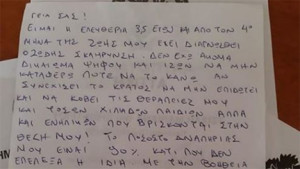 ΓΕΙΑ ΣΑΣ!
ΕΙΜΑΙ Η ΕΛΕΥΘΕΡΙΑ 35 ΕΤΩΝ ΑΠΟ ΤΟΝ 4º
ΜΗΝΑ ΤΗΣ ΖΩΗΣ ΜΟΥ ΕΧΕΙ ΔΙΑΓΝΩΣΘΕΙ
ΣΚΛΗΡΥΝΣΗ ΔΕΝ ΕΧΩ ΔΙΚΑΙΩΜΑ ΨΗΦΟΥ ΚΑΙ ΙΣΩΝ ΝΑ ΜΗΝ
ΚΑΤΑΦΕΡΩ ΠΟΤΕ ΝΑ ΤΟ ΚΑΝΩ ΑΝ
ΣΥΝΕΧΙΣΕΙ ΤΟ ΚΡΑΤΟΣ ΝΑ ΜΗΝ
ΚΑΙ ΝΑ ΚΟΒΕΙ ΤΙΣ ΘΕΡΑΠΕΙΕΣ ΜΟΥ
ΚΑΙ ΤΟΣΩΝ ΧΙΛΙΑΔΩΝ ΠΑΙΔΙΩΝ ΑΛΛΑ
ΚΑΙ ΕΝΗΛΙΚΩΝ ΠΟΥ ΒΡΙΣΚΟΝΤΑΙ ΣΤΗΝ
ΘΕΣΗ ΜΟΥ! ΤΟ ΠΟΣΟΣΤΟ ΑΝΑΠΗΡΙΑΣ
ΜΟΥ ΕΙΝΑΙ 90% ΚΑΤΙ ΠΟΥ ΔΕΝ
ΕΠΕΛΕΞΑ Η ΙΔΙΑ ΜΕ ΤΗΝ ΒΟΗΘΕΙΑ